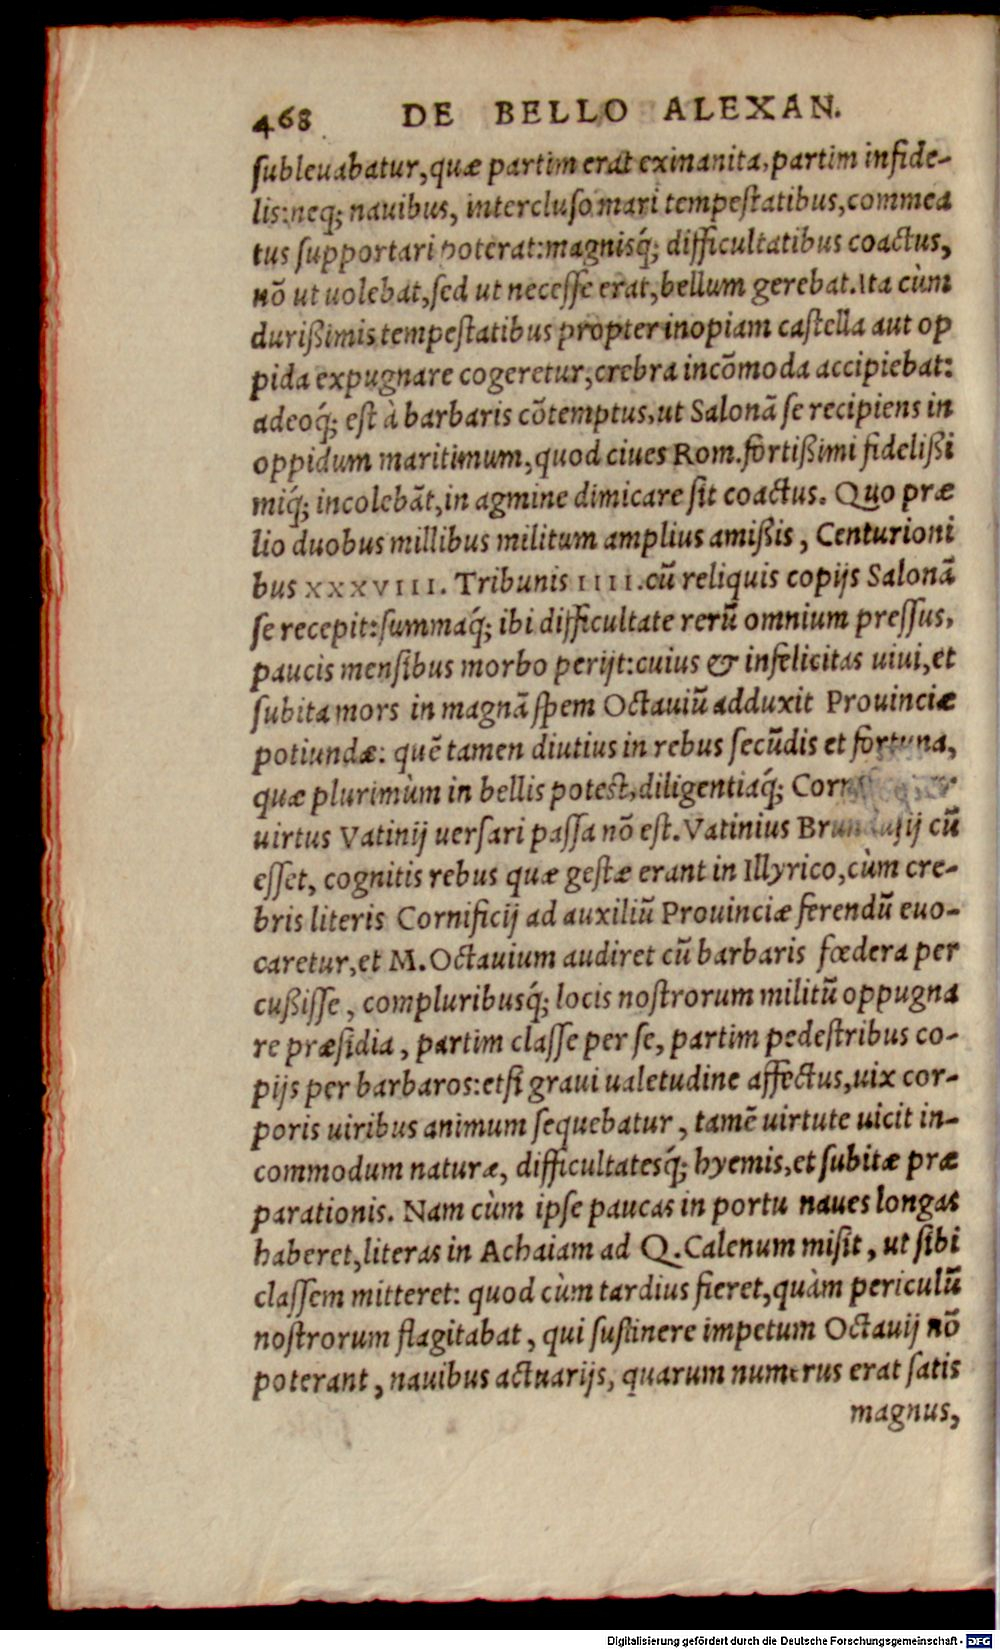 468 DE BELLO ALEXAN.
subleuabatur, quæ partim erat exinanita, partim infide-
lis: neq; nauibus, intercluso mari tempestatibus, commea
tus supportari poterat: magnisq́; difficultatibus coactus,
nō ut uolebat, sed ut necesse erat, bellum gerebat. Ita cùm
durißimis tempestatibus propter inopiam castella aut op
pida expugnare cogeretur, crebra incōmoda accipiebat:
adeoq́; est à barbaris cōtemptus, ut Salonā se recipiens in
oppidum maritimum, quod ciues Rom. fortißimi fidelißi
miq́; incolebāt, in agmine dimicare sit coactus. Quo præ
lio duobus millibus militum amplius amißis, Centurioni
bus XXXVIII. Tribunis IIII. cū reliquis copijs Salonā
se recepit: summaq́; ibi difficultate rerū omnium pressus,
paucis mensibus morbo perijt: cuius & infelicitas uiui, et
subita mors in magnā spem Octauiū adduxit Prouinciæ
potiundæ: quē tamen diutius in rebus secūdis et fortuna,
quæ plurimùm in bellis potest, diligentiaq́;
uirtus Vatinij uersari passa nō est. Vatinius Brundusij cū
esset, cognitis rebus quæ gestæ erant in Illyrico, cùm cre-
bris literis Cornificij ad auxiliū Prouinciæ ferendū euo-
caretur, et M. Octauium audiret cū barbaris fœdera per
cußisse, compluribusq́; locis nostrorum militū oppugna
re præsidia, partim classe per se, partim pedestribus co-
pijs per barbaros: etsi graui ualetudine affectus, uix cor-
poris uiribus animum sequebatur, tamē uirtute uicit in-
commodum naturæ, difficultatesq́; hyemis, et subitæ præ
parationis. Nam cùm ipse paucas in portu naues longas
haberet, literas in Achaiam ad Q. Calenum misit, ut sibi
classem mitteret: quod cùm tardius fieret, quàm periculū
nostrorum flagitabat, qui sustinere impetum Octauij nō
poterant, nauibus actuarijs, quarum numerus erat satis
magnus,
Digitalisierung gefördert durch die Deutsche Forschungsgemeinschaft - DFG